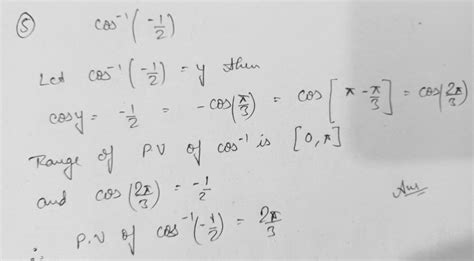 ⑤ cos⁻¹(-1/2)
Let cos⁻¹(-1/2) = y then
cos y = -1/2 = -cos(π/3) = cos[π - π/3] = cos(2π/3)
Range of P.V of cos⁻¹ is [0, π]
and cos(2π/3) = -1/2
Ans
∴ P.V of cos⁻¹(-1/2) = 2π/3